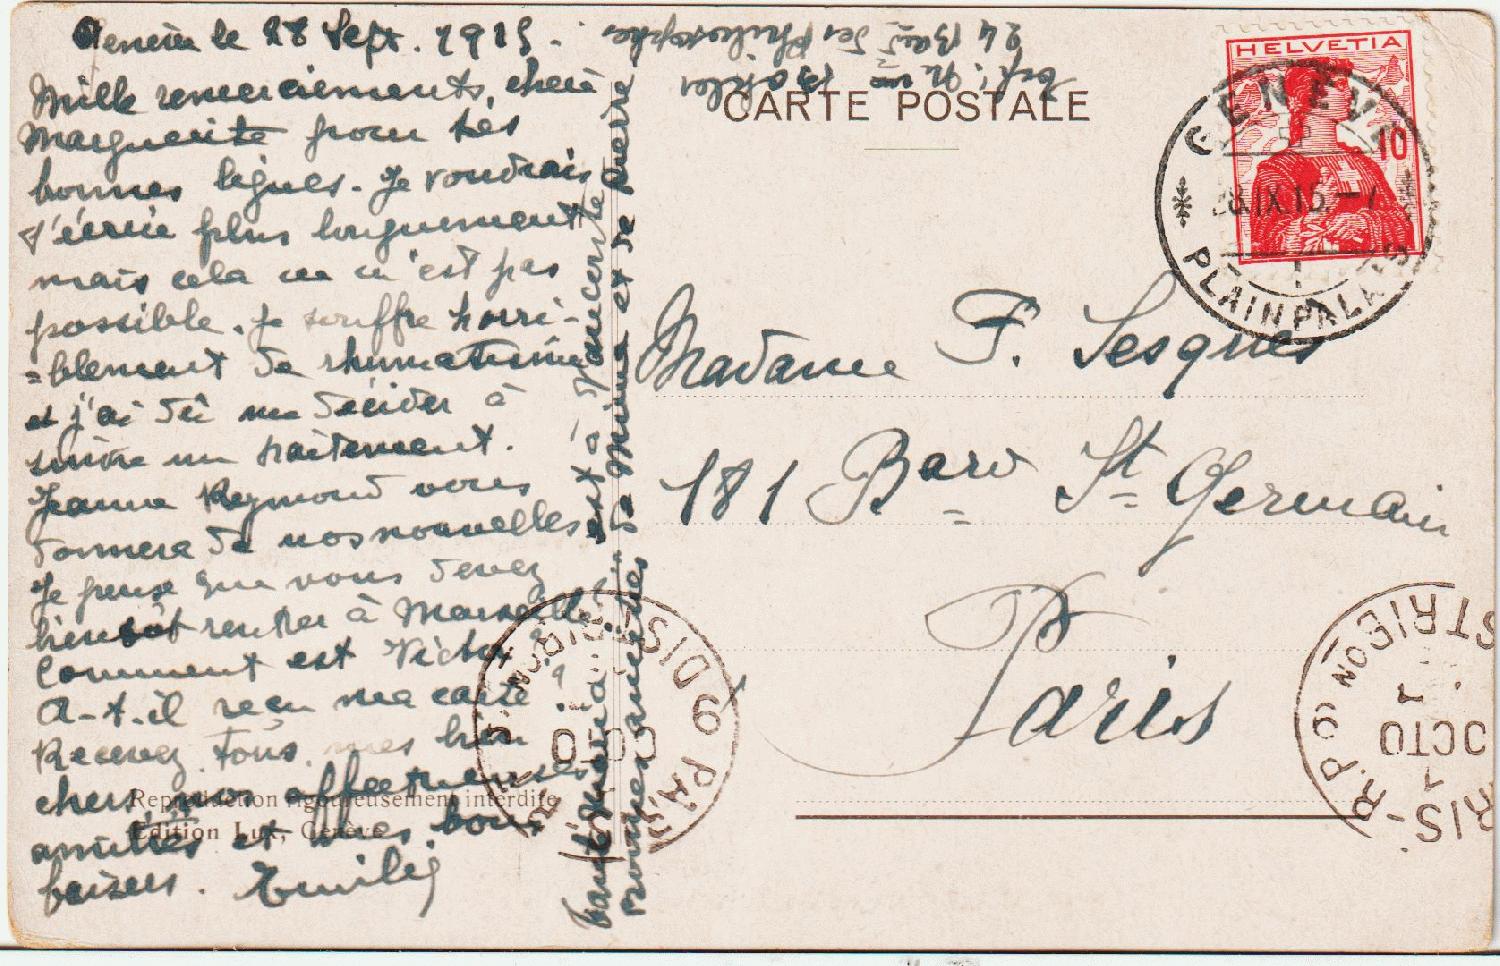 Genève le 28 Sept. 1915.
Mille remerciements, chère
Marguerite pour tes
bonnes lignes. Je voudrais
t'écrire plus longuement
mais cela ne m'est pas
possible. Je souffre horri-
=blement de rhumatisme
et j'ai dû me décider à
suivre un traitement.
Jeanne Reymond vous
donnera de nos nouvelles
Je pense que vous devez
bientôt rentrer à Marseille
Comment est Victor ?
A-t-il reçu ma carte ?
Recevez tous, mes bien
chers, mes affectueuses
amitiés et mes bons
baisers. Emilie
Tante
est à
de Mima et de Pierre
24 Bard des Philosophes
CARTE POSTALE
HELVETIA
10
GENÈVE
28.IX.15.-7
PLAINPALAIS
Madame F. Sesquès
181 Bard St Germain
Paris
Reproduction rigoureusement interdite
Edition Lux, Genève
PARIS
DISTRIBON
OCTO
R.P. 6
DISTRIBON
OCTO